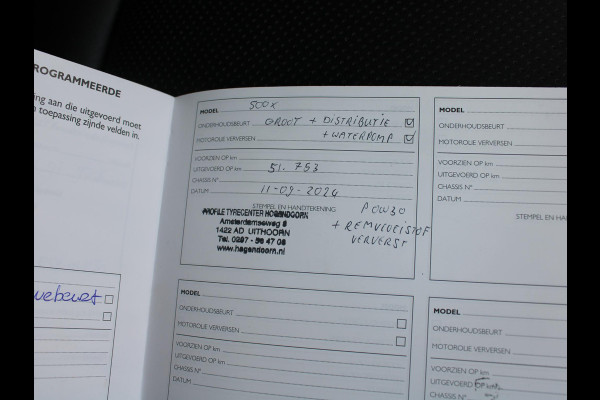 ROGRAMMEERDE
ing aan die uitgevoerd moet
toepassing zijnde velden in.
MODEL 500X
ONDERHOUDSBEURT GROOT + DISTRIBUTIE
MOTOROLIE VERVERSEN + WATERPOMP
VOORZIEN OP km
UITGEVOERD OP km 51.753
CHASSIS N°
DATUM 11-09-2024
STEMPEL EN HANDTEKENING
PROFILE TYRECENTER HOGENDOORN
Amsterdamseweg 9
1422 AD UITHOORN
Tel. 0297 - 56 47 08
www.hogendoorn.nl
0W30
+ REMVLOEISTOF
VERVERST
MODEL
ONDERHOUDSBEURT
MOTOROLIE VERVERSEN
VOORZIEN OP km
UITGEVOERD OP km
CHASSIS N°
DATUM
STEMPEL EN HA
MODEL
ONDERHOUDSBEURT
MOTOROLIE VERVERSEN
VOORZIEN OP km
UITGEVOERD OP km
CHASSIS N°
DATUM
MODEL
ONDERHOUDSBEURT
MOTOROLIE VERVERSEN
VOORZIEN OP km
UITGEVOERD OP km
CHASSIS N°